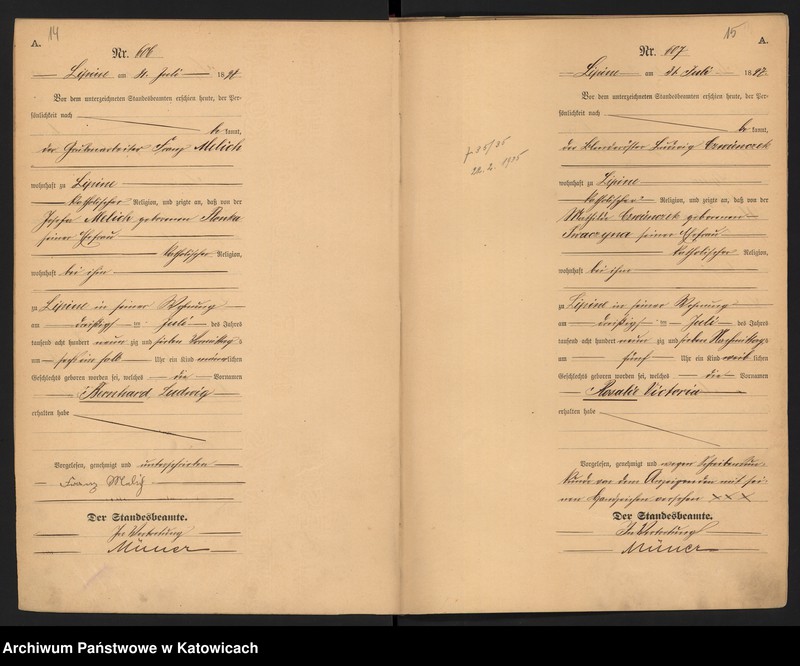 14
A.
Nr. 606
Lipine am 31. Juli 1897
Vor dem unterzeichneten Standesbeamten erschien heute, der Per-
sönlichkeit nach
be kannt,
der Grubenarbeiter Franz Melich
wohnhaft zu Lipine
katholischer Religion, und zeigte an, daß von der
Josefa Melich geborenen
seiner Ehefrau
katholischer Religion,
wohnhaft bei ihm
zu Lipine in seiner Wohnung
am dreißigsten Juli des Jahres
tausend acht hundert neun zig und sieben Vormittags
um sechseinhalb Uhr ein Kind männlichen
Geschlechts geboren worden sei, welches die Vornamen
Bernhard Ludwig
erhalten habe
Vorgelesen, genehmigt und unterschrieben
Franz Melich
Der Standesbeamte.
In Vertretung
15
A.
Nr. 607
Lipine am 31. Juli 1897
Vor dem unterzeichneten Standesbeamten erschien heute, der Per-
sönlichkeit nach
be kannt,
der Ludwig
wohnhaft zu Lipine
katholischer Religion, und zeigte an, daß von der
Mathilde geborenen
seiner Ehefrau
katholischer Religion,
wohnhaft bei ihm
zu Lipine in seiner Wohnung
am dreißigsten Juli des Jahres
tausend acht hundert neun zig und sieben Nachmittags
um fünf Uhr ein Kind weib lichen
Geschlechts geboren worden sei, welches die Vornamen
Rosalie Victoria
erhalten habe
Vorgelesen, genehmigt und wegen Schreibensun-
kunde von dem Anzeigenden mit sei-
nen Handzeichen versehen XXX
Der Standesbeamte.
In Vertretung
Archiwum Państwowe w Katowicach